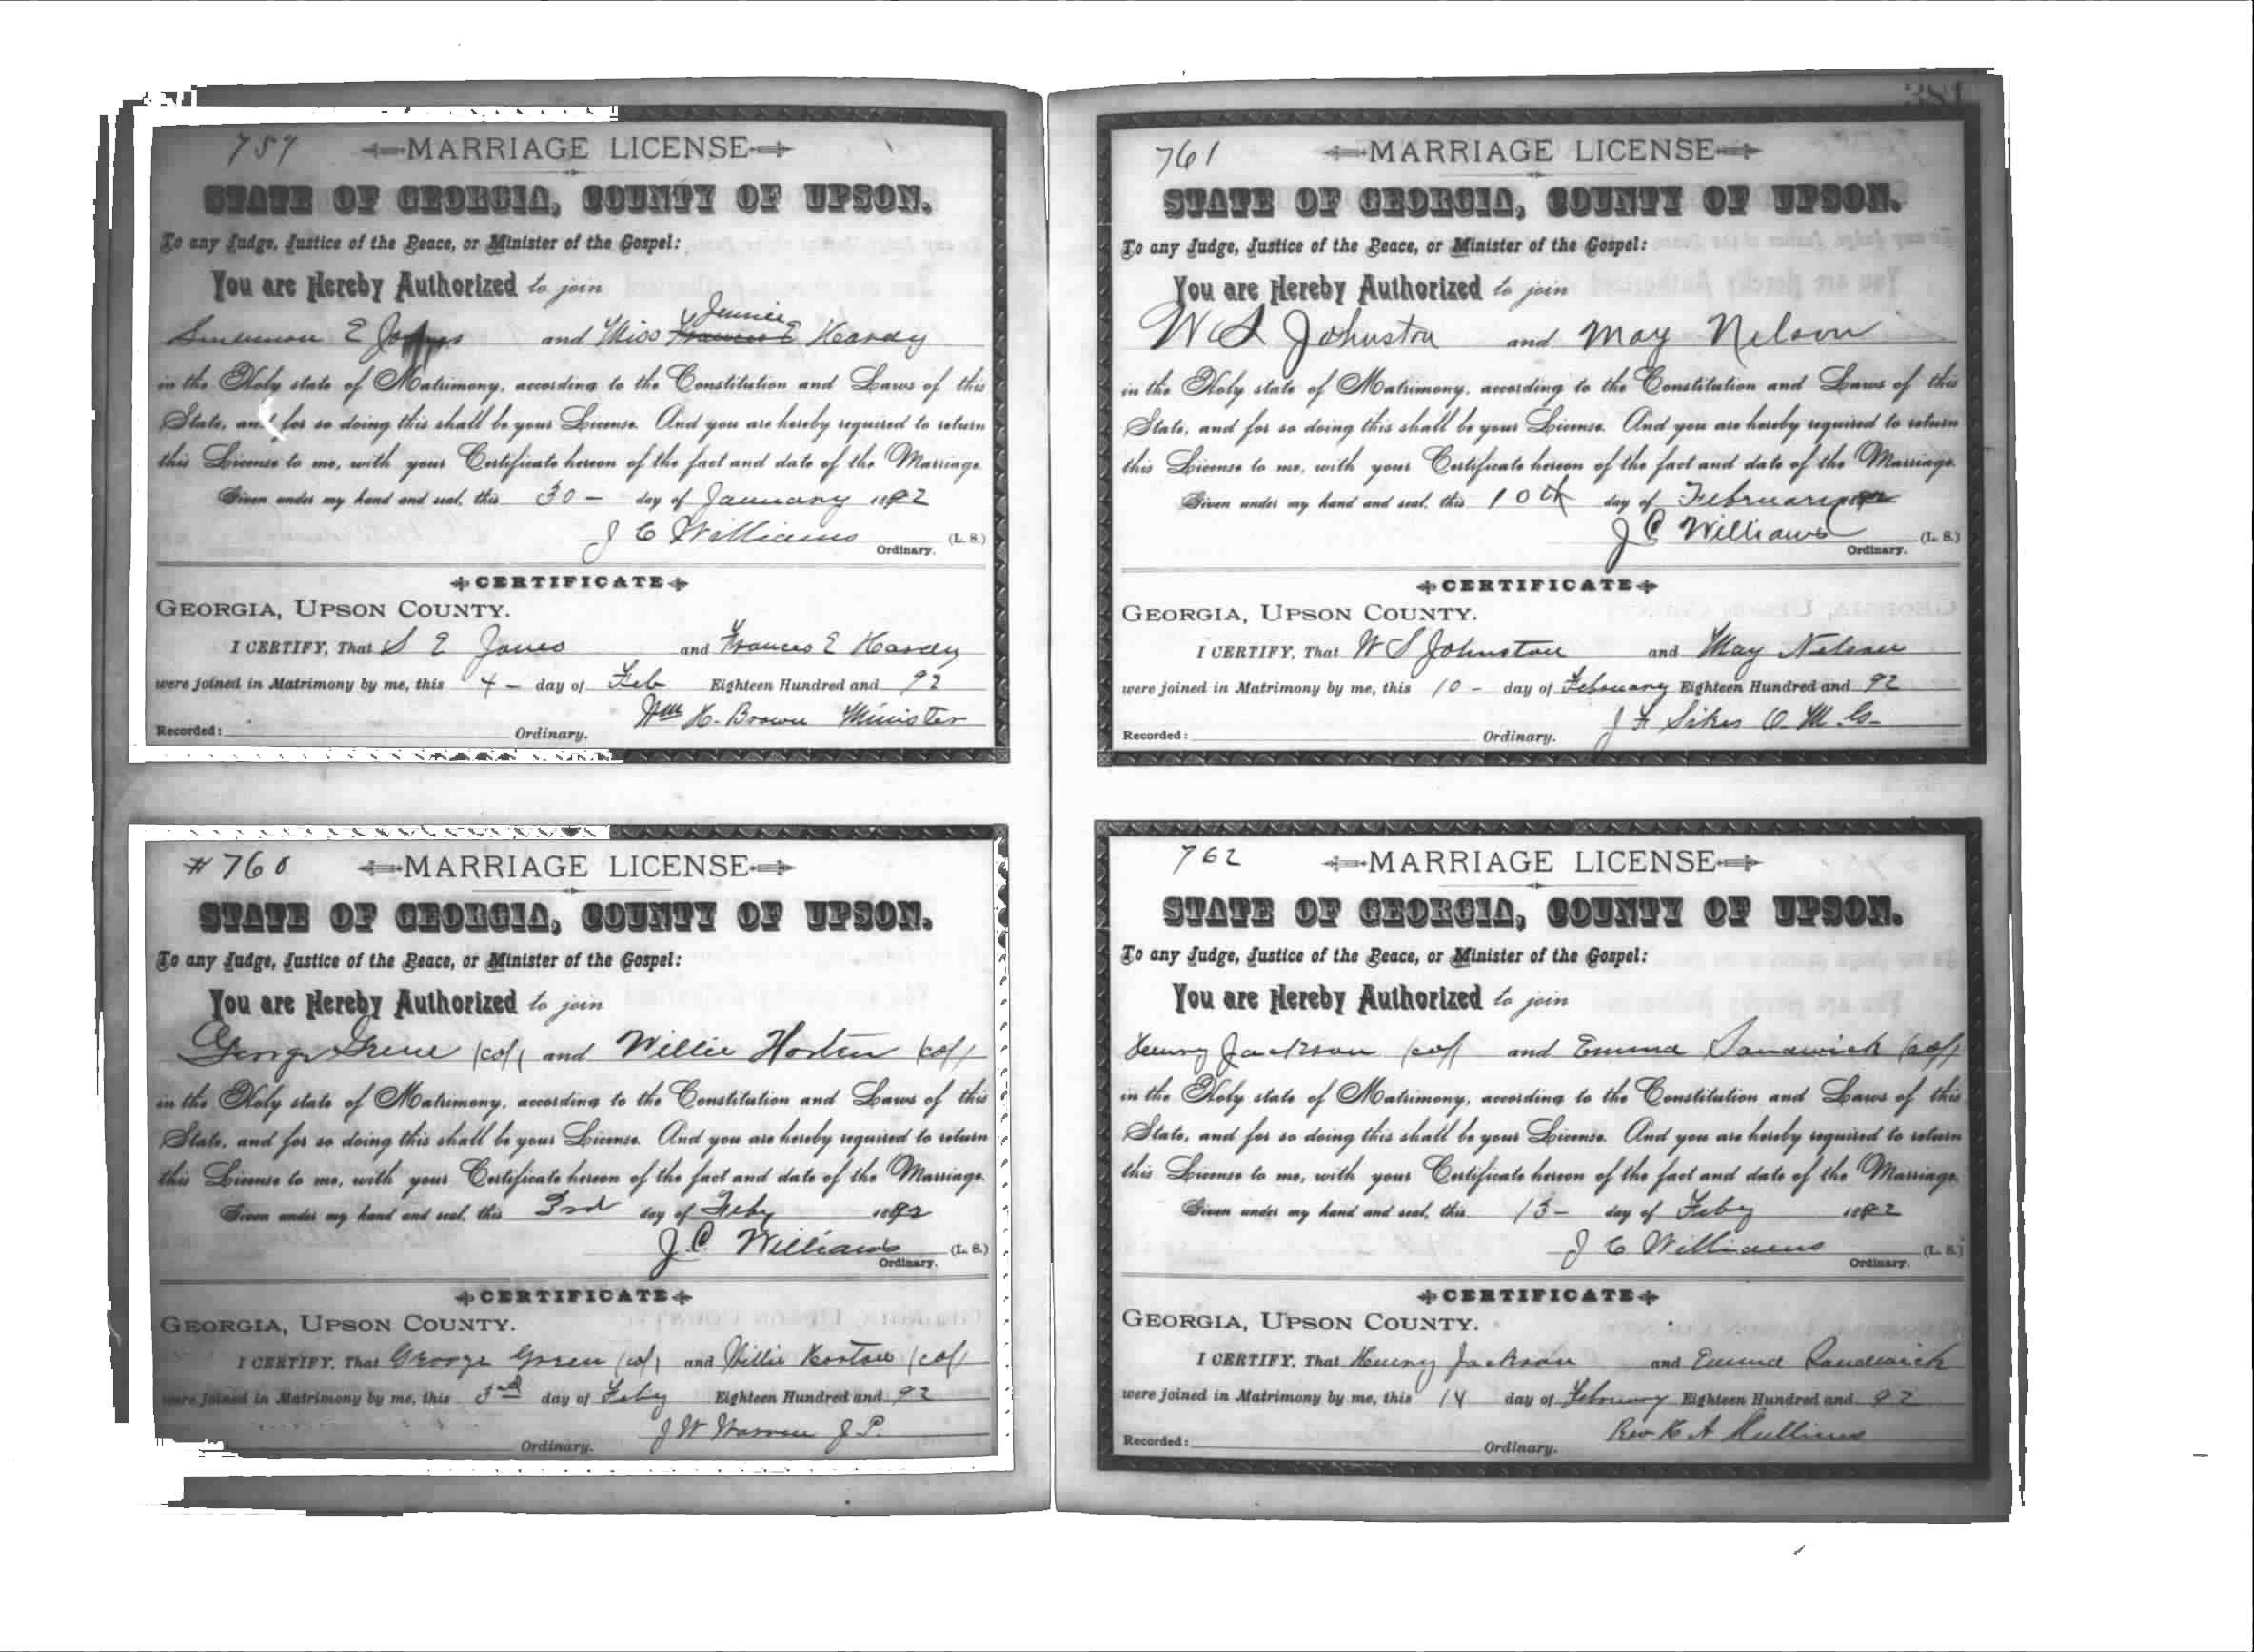 759
MARRIAGE LICENSE
STATE OF GEORGIA, COUNTY OF UPSON.
To any Judge, Justice of the Peace, or Minister of the Gospel:
You are Hereby Authorized to join
Jennie
E Jones and Miss Frances E Hardy
in the Holy state of Matrimony, according to the Constitution and Laws of this
State, and for so doing this shall be your License. And you are hereby required to return
this License to me, with your Certificate hereon of the fact and date of the Marriage.
Given under my hand and seal, this 30 - day of January 1892
J C Williams (L. S.)
Ordinary.
CERTIFICATE
GEORGIA, UPSON COUNTY.
I CERTIFY, That S E Jones and Frances E Hardy
were joined in Matrimony by me, this 4 - day of Feb Eighteen Hundred and 92
Wm H. Brown Minister
Recorded: Ordinary.
# 760
MARRIAGE LICENSE
STATE OF GEORGIA, COUNTY OF UPSON.
To any Judge, Justice of the Peace, or Minister of the Gospel:
You are Hereby Authorized to join
George Grene (col) and Willie Horten (col)
in the Holy state of Matrimony, according to the Constitution and Laws of this
State, and for so doing this shall be your License. And you are hereby required to return
this License to me, with your Certificate hereon of the fact and date of the Marriage.
Given under my hand and seal, this 3rd day of Feby 1892
J. C. Williams (L. S.)
Ordinary.
CERTIFICATE
GEORGIA, UPSON COUNTY.
I CERTIFY, That George Green (col) and Willie Horton (col)
were joined in Matrimony by me, this 3rd day of Feby Eighteen Hundred and 92
J W Warren J. P.
Ordinary.
381
761
MARRIAGE LICENSE
STATE OF GEORGIA, COUNTY OF UPSON.
To any Judge, Justice of the Peace, or Minister of the Gospel:
You are Hereby Authorized to join
W S Johnston and May Nelson
in the Holy state of Matrimony, according to the Constitution and Laws of this
State, and for so doing this shall be your License. And you are hereby required to return
this License to me, with your Certificate hereon of the fact and date of the Marriage.
Given under my hand and seal, this 10th day of February 1892
J C Williams (L. S.)
Ordinary.
CERTIFICATE
GEORGIA, UPSON COUNTY.
I CERTIFY, That W S Johnston and May Nelson
were joined in Matrimony by me, this 10 - day of February Eighteen Hundred and 92
J F Sikes O. M. G.
Recorded: Ordinary.
762
MARRIAGE LICENSE
STATE OF GEORGIA, COUNTY OF UPSON.
To any Judge, Justice of the Peace, or Minister of the Gospel:
You are Hereby Authorized to join
Henry Jackson (col) and Emma Sandwich (col)
in the Holy state of Matrimony, according to the Constitution and Laws of this
State, and for so doing this shall be your License. And you are hereby required to return
this License to me, with your Certificate hereon of the fact and date of the Marriage.
Given under my hand and seal, this 13 - day of Feby 1892
J C Williams (L. S.)
Ordinary.
CERTIFICATE
GEORGIA, UPSON COUNTY.
I CERTIFY, That Henry Jackson and Emma Sandwich
were joined in Matrimony by me, this 14 day of February Eighteen Hundred and 92
Rev H A Mullins
Recorded: Ordinary.